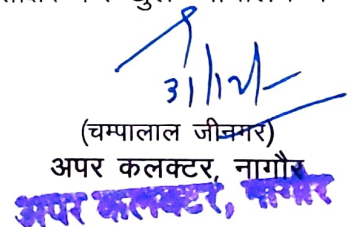 31/12/
(चम्पालाल जीनगर)
अपर कलक्टर, नागौर
अपर कलक्टर, नागौर